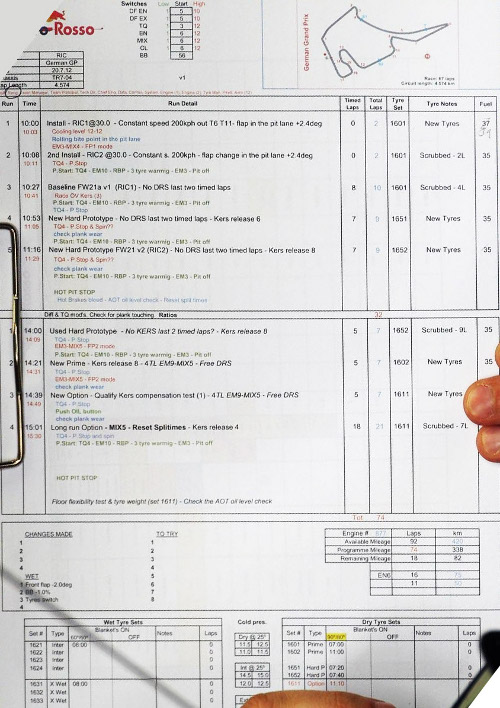 Switches Low Start High
DF EN 1 5 10
DF EX 5 10
TQ 1 3 12
BN 1 6 12
MIX 1 6 12
CL 1 6 12
BB 56
v1
Toro Rosso
RIC
German GP
20.7.12
TR7-04
Lap Length 4.574
German Grand Prix
Race: 67 laps
Circuit length: 4.574 km
Run Time Run Detail Timed Laps Total Laps Tyre Set Tyre Notes Fuel
1 10:00 Install - RIC1@30.0 - Constant speed 200kph out T6 T11- flap change in the pit lane +2.4deg 0 2 1601 New Tyres 37
10:03 Cooling level 12-12
Rolling bite point in the pit lane
EM3-MIX4- FP1 mode
2 10:08 2nd Install - RIC2 @30.0 - Constant s. 200kph - flap change in the pit lane +2.4deg 0 2 1601 Scrubbed - 2L 35
10:11 TQ4 - P.Stop
P.Start: TQ4 - EM10 - RBP - 3 tyre warmig - EM3 - Pit off
3 10:27 Baseline FW21a v1 (RIC1) - No DRS last two timed laps 8 10 1601 Scrubbed - 4L 35
10:41 Race OV Kers (3)
TQ4 - P.Stop
4 10:53 New Hard Prototype - No DRS last two timed laps - Kers release 6 7 9 1651 New Tyres 35
11:05 TQ4 - P.Stop & Spin??
check plank wear
P.Start: TQ4 - EM10 - RBP - 3 tyre warmig - EM3 - Pit off
5 11:16 New Hard Prototype FW21 v2 (RIC2) - No DRS last two timed laps - Kers release 8 7 9 1652 New Tyres 35
11:29 TQ4 - P.Stop & Spin??
check plank wear
P.Start: TQ4 - EM10 - RBP - 3 tyre warmig - EM3 - Pit off
HOT PIT STOP
Hot Brakes bleed - AOT oil level check - Reset split times
Diff & TQ mods. Check for plank touching Ratios 32
1 14:00 Used Hard Prototype - No KERS last 2 timed laps? - Kers release 8 5 7 1652 Scrubbed - 9L 35
14:09 TQ4 - P.Stop
EM3-MIX5- FP2 mode
P.Start: TQ4 - EM10 - RBP - 3 tyre warmig - EM3 - Pit off
2 14:21 New Prime - Kers release 8 - 4TL EM9-MIX5 - Free DRS 5 7 1602 New Tyres 35
14:31 TQ4 - P.Stop
EM3-MIX5- FP2 mode
check plank wear
3 14:39 New Option - Qualify Kers compensation test (1) - 4TL EM9-MIX5 - Free DRS 5 7 1611 New Tyres
14:49 TQ4 - P.Stop
Push OIL button
check plank wear
4 15:01 Long run Option - MIX5 - Reset Splitimes - Kers release 4 18 21 1611 Scrubbed - 7L
15:30 TQ4 - P.Stop and spin
P.Start: TQ4 - EM10 - RBP - 3 tyre warmig - EM3 - Pit off
HOT PIT STOP
Floor flexibility test & tyre weight (set 1611) - Check the AOT oil level check
Tot. 74
CHANGES MADE TO TRY
1 1
2 2
3 3
4 4
WET 5
1 Front flap -2.0deg 6
2 BB -1.0% 7
3 Tyres switch 8
4
Engine # Laps km
Available Mileage 92 420
Programme Mileage 74 338
Remaining Mileage 18 82
EN6 16
11
Wet Tyre Sets
Set # Type Blanket's ON OFF Notes Laps
1621 Inter 08:00 0
1622 Inter 0
1623 Inter 0
1624 Inter 0
1631 X Wet 08:00 0
1632 X Wet 0
1633 X Wet 0
Cold pres.
Dry @ 25°
11.5 12.5
11.0 11.5
Int @ 25°
14.5 15.0
12.0 12.5
Dry Tyre Sets
Set # Type Blanket's ON OFF Notes Laps
1601 Prime 07:00 0
1602 Prime 11:00 0
1651 Hard P 07:20 0
1652 Hard P 07:40 0
1611 Option 11:10 0